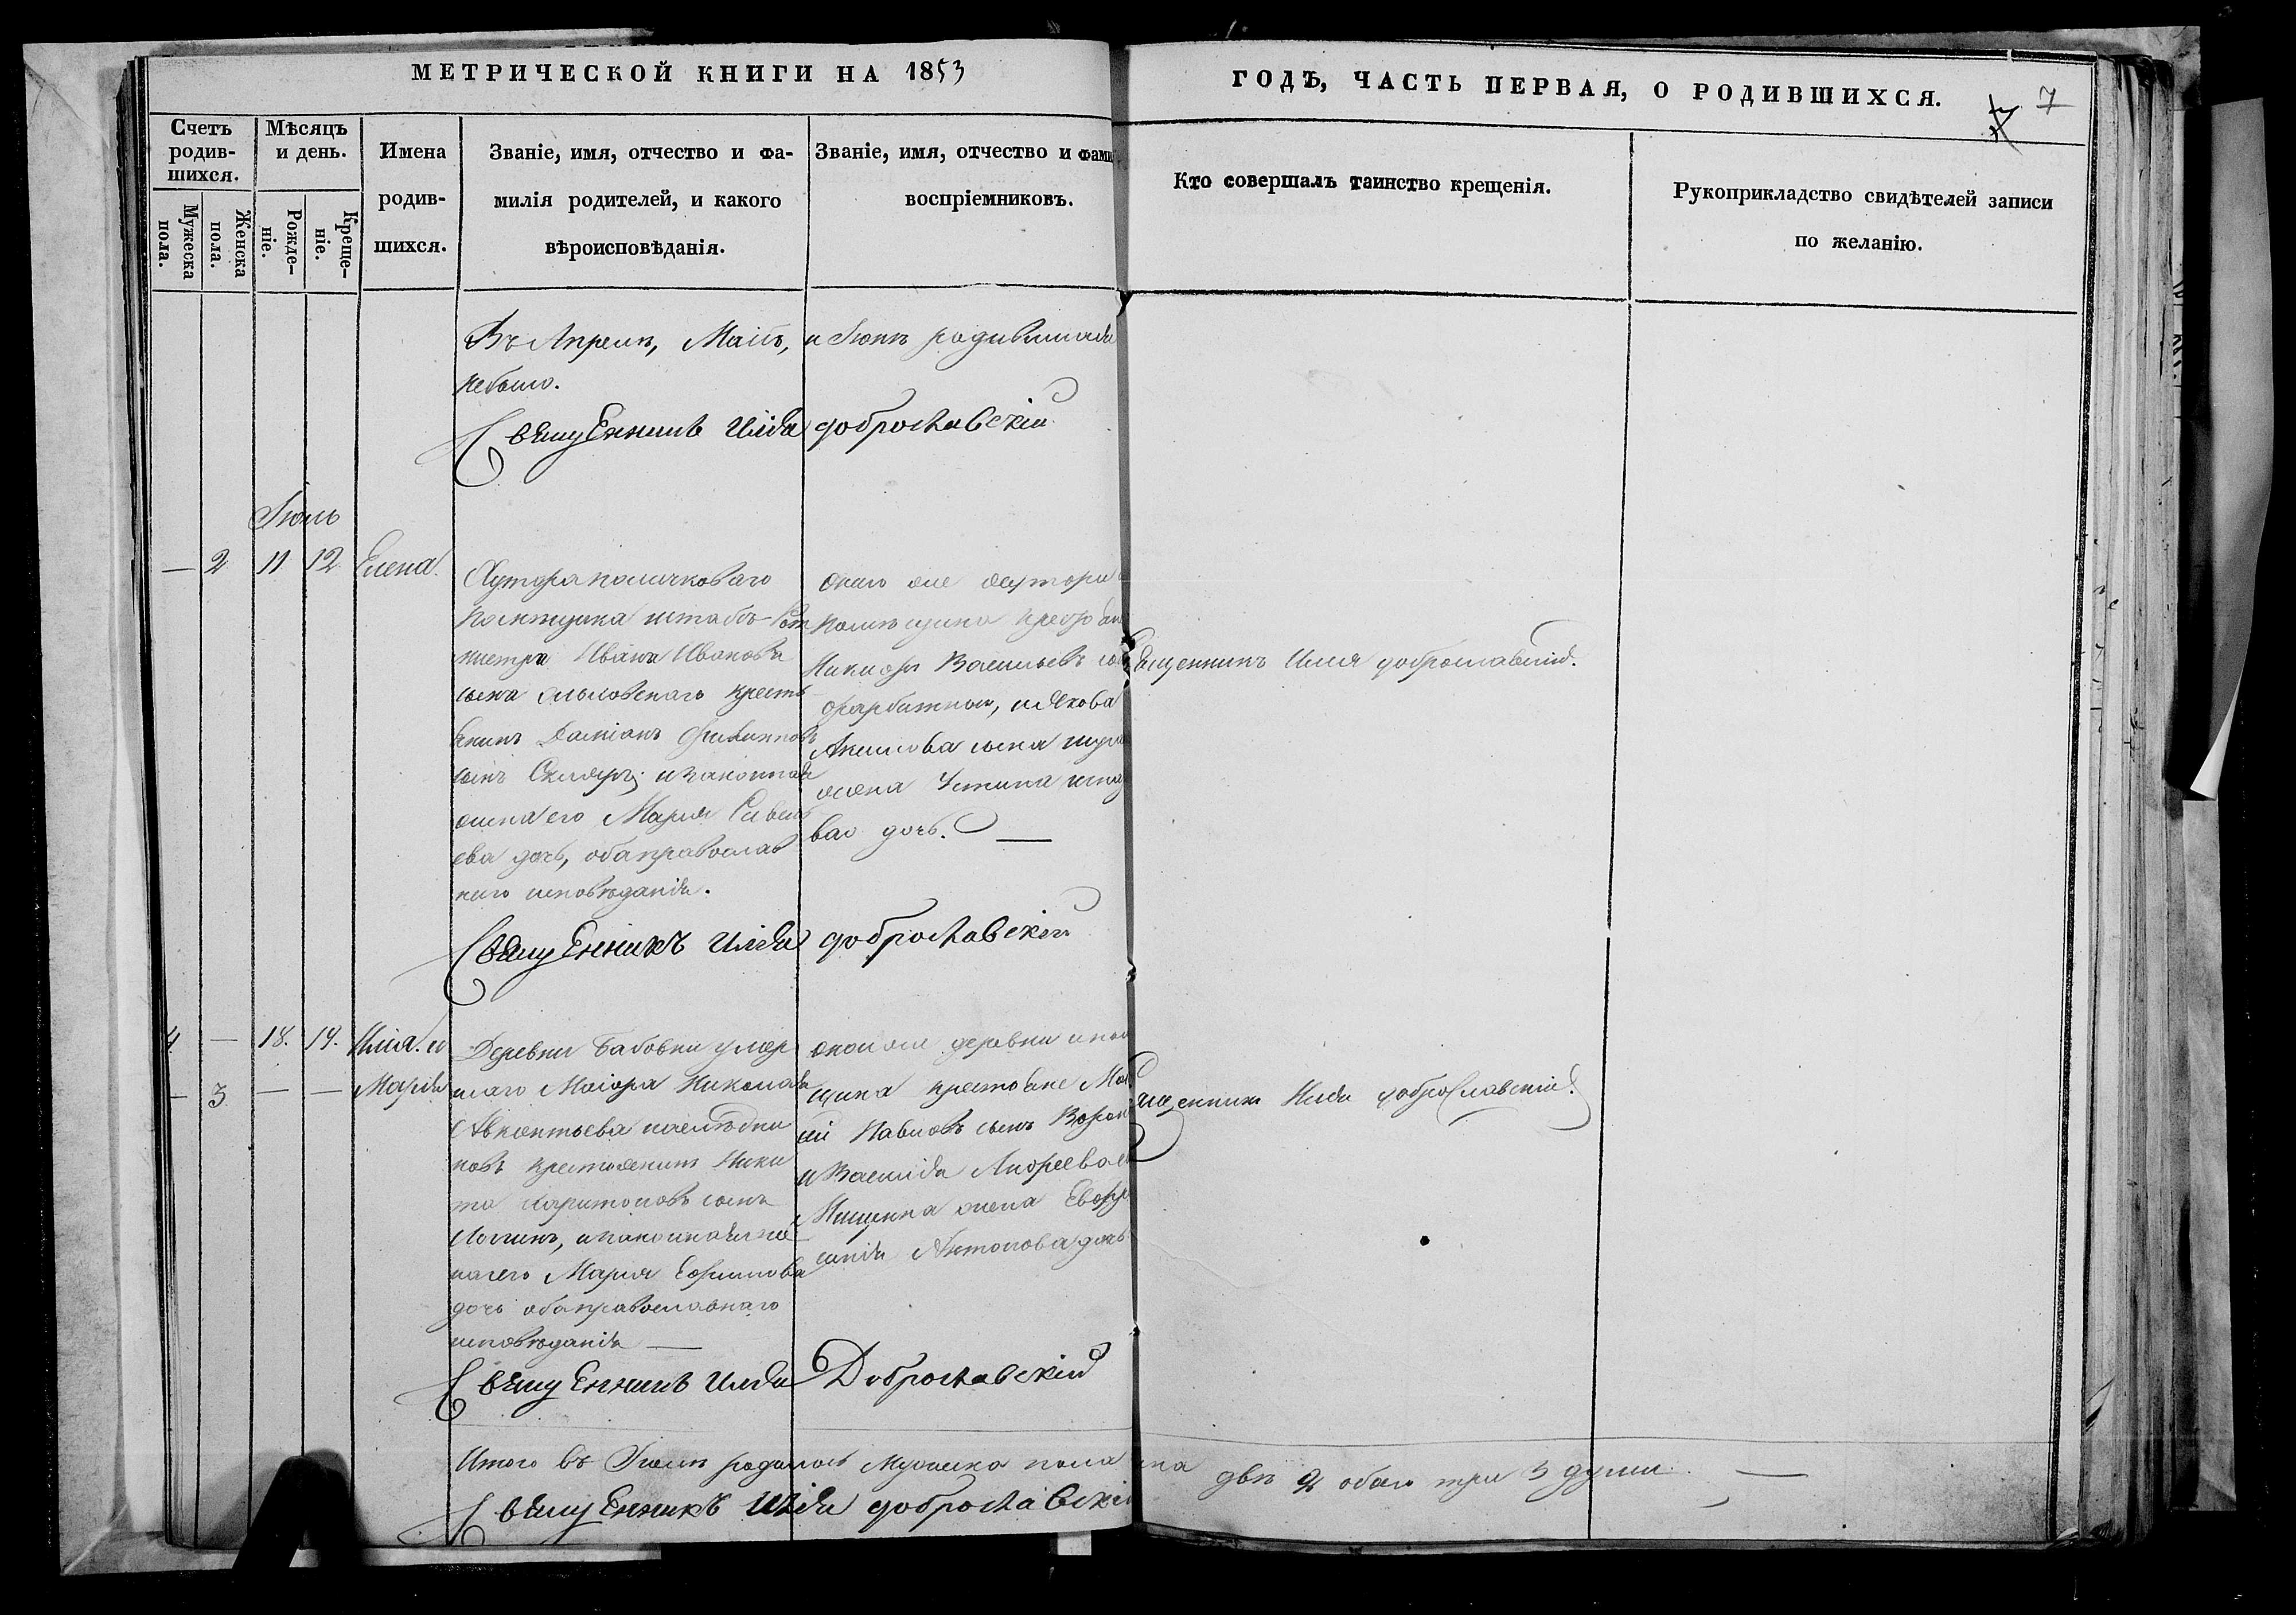 МЕТРИЧЕСКОЙ КНИГИ НА 1853
ГОДЪ, ЧАСТЬ ПЕРВАЯ, О РОДИВШИХСЯ.
7
Счетъ родив-шихся.
Мужеска пола.
Женска пола.
Мѣсяцъ и день.
Рожде-ніе.
Креще-ніе.
Имена
родив-
шихся.
Званіе, имя, отчество и фа-
милія родителей, и какого
вѣроисповѣданія.
Званіе, имя, отчество и фами
воспріемниковъ.
Кто совершалъ таинство крещенія.
Рукоприкладство свидѣтелей записи
по желанію.
Въ Апрелѣ, Маіѣ, и Іюнѣ родившихся
небыло.
Священникъ Илія Доброславскій
Іюль
— 2 11 12 Елена.
Хутора
штабъ Рот
мистра Ивана Иванова
сына крестья
янинъ Даміанъ Филиповъ
сынъ Скляръ; и законная
жена его Марія Савель
ева дочь, оба православ
наго исповѣданія.
оного же хутора
Никифоръ Васильевъ
и Якова
Акимова сына
жена Устина
ва дочь. —
Священникъ Илія Доброславскій.
Священникъ Илія Доброславскій
4 — 18. 19. Илія. и
— 3 — — Марія
Деревни Бабовки умер
шаго Маіора Николая
Авксентьева наслѣдни
ковъ крестьянинъ Ники
та Харитоновъ сынъ
и законная же
на его Марія Ефимова
дочь оба православнаго
исповѣданія —
оной же деревни и пом
щика крестьяне
Павловъ сынъ
и Василія Андреева
жена Евфро
синія Антонова дочь
Священникъ Илія Доброславскій.
Священникъ Илія Доброславскій
Итого въ Іюлѣ родилось Мужеска пола
двѣ 2 обоего три 3 души. —
Священникъ Илія Доброславскій